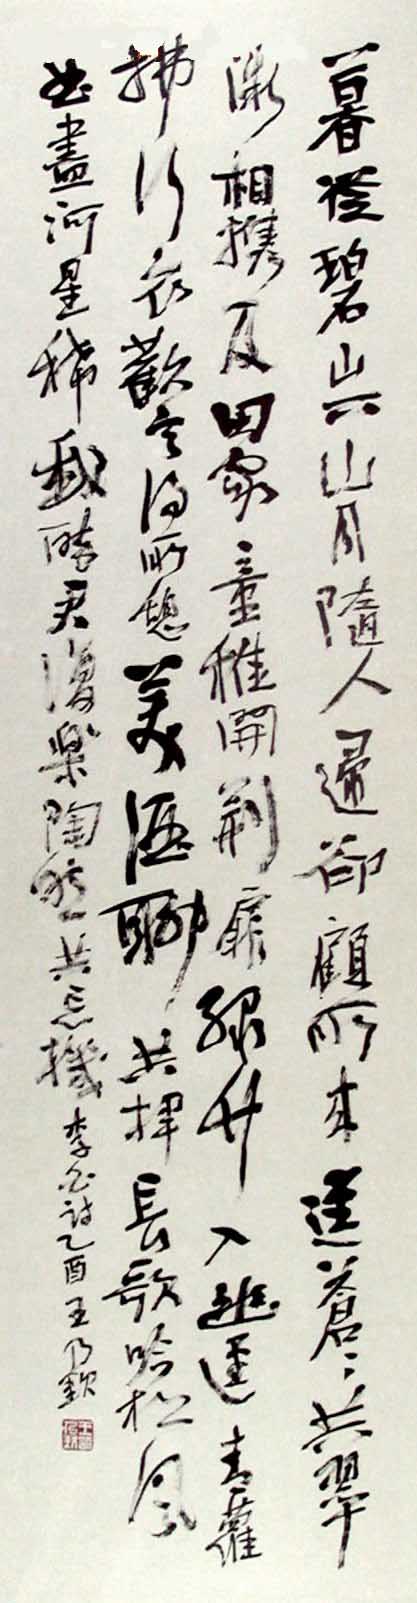 暮從碧山下山月隨人歸卻顧所來逕蒼〻共翠
微相攜及田家童稚開荊扉綠竹入幽逕青蘿
拂行衣歡言得所憩美酒聊共揮長歌吟松風
曲盡河星稀我醉君復樂陶然共忘機李白詩乙酉王乃欽